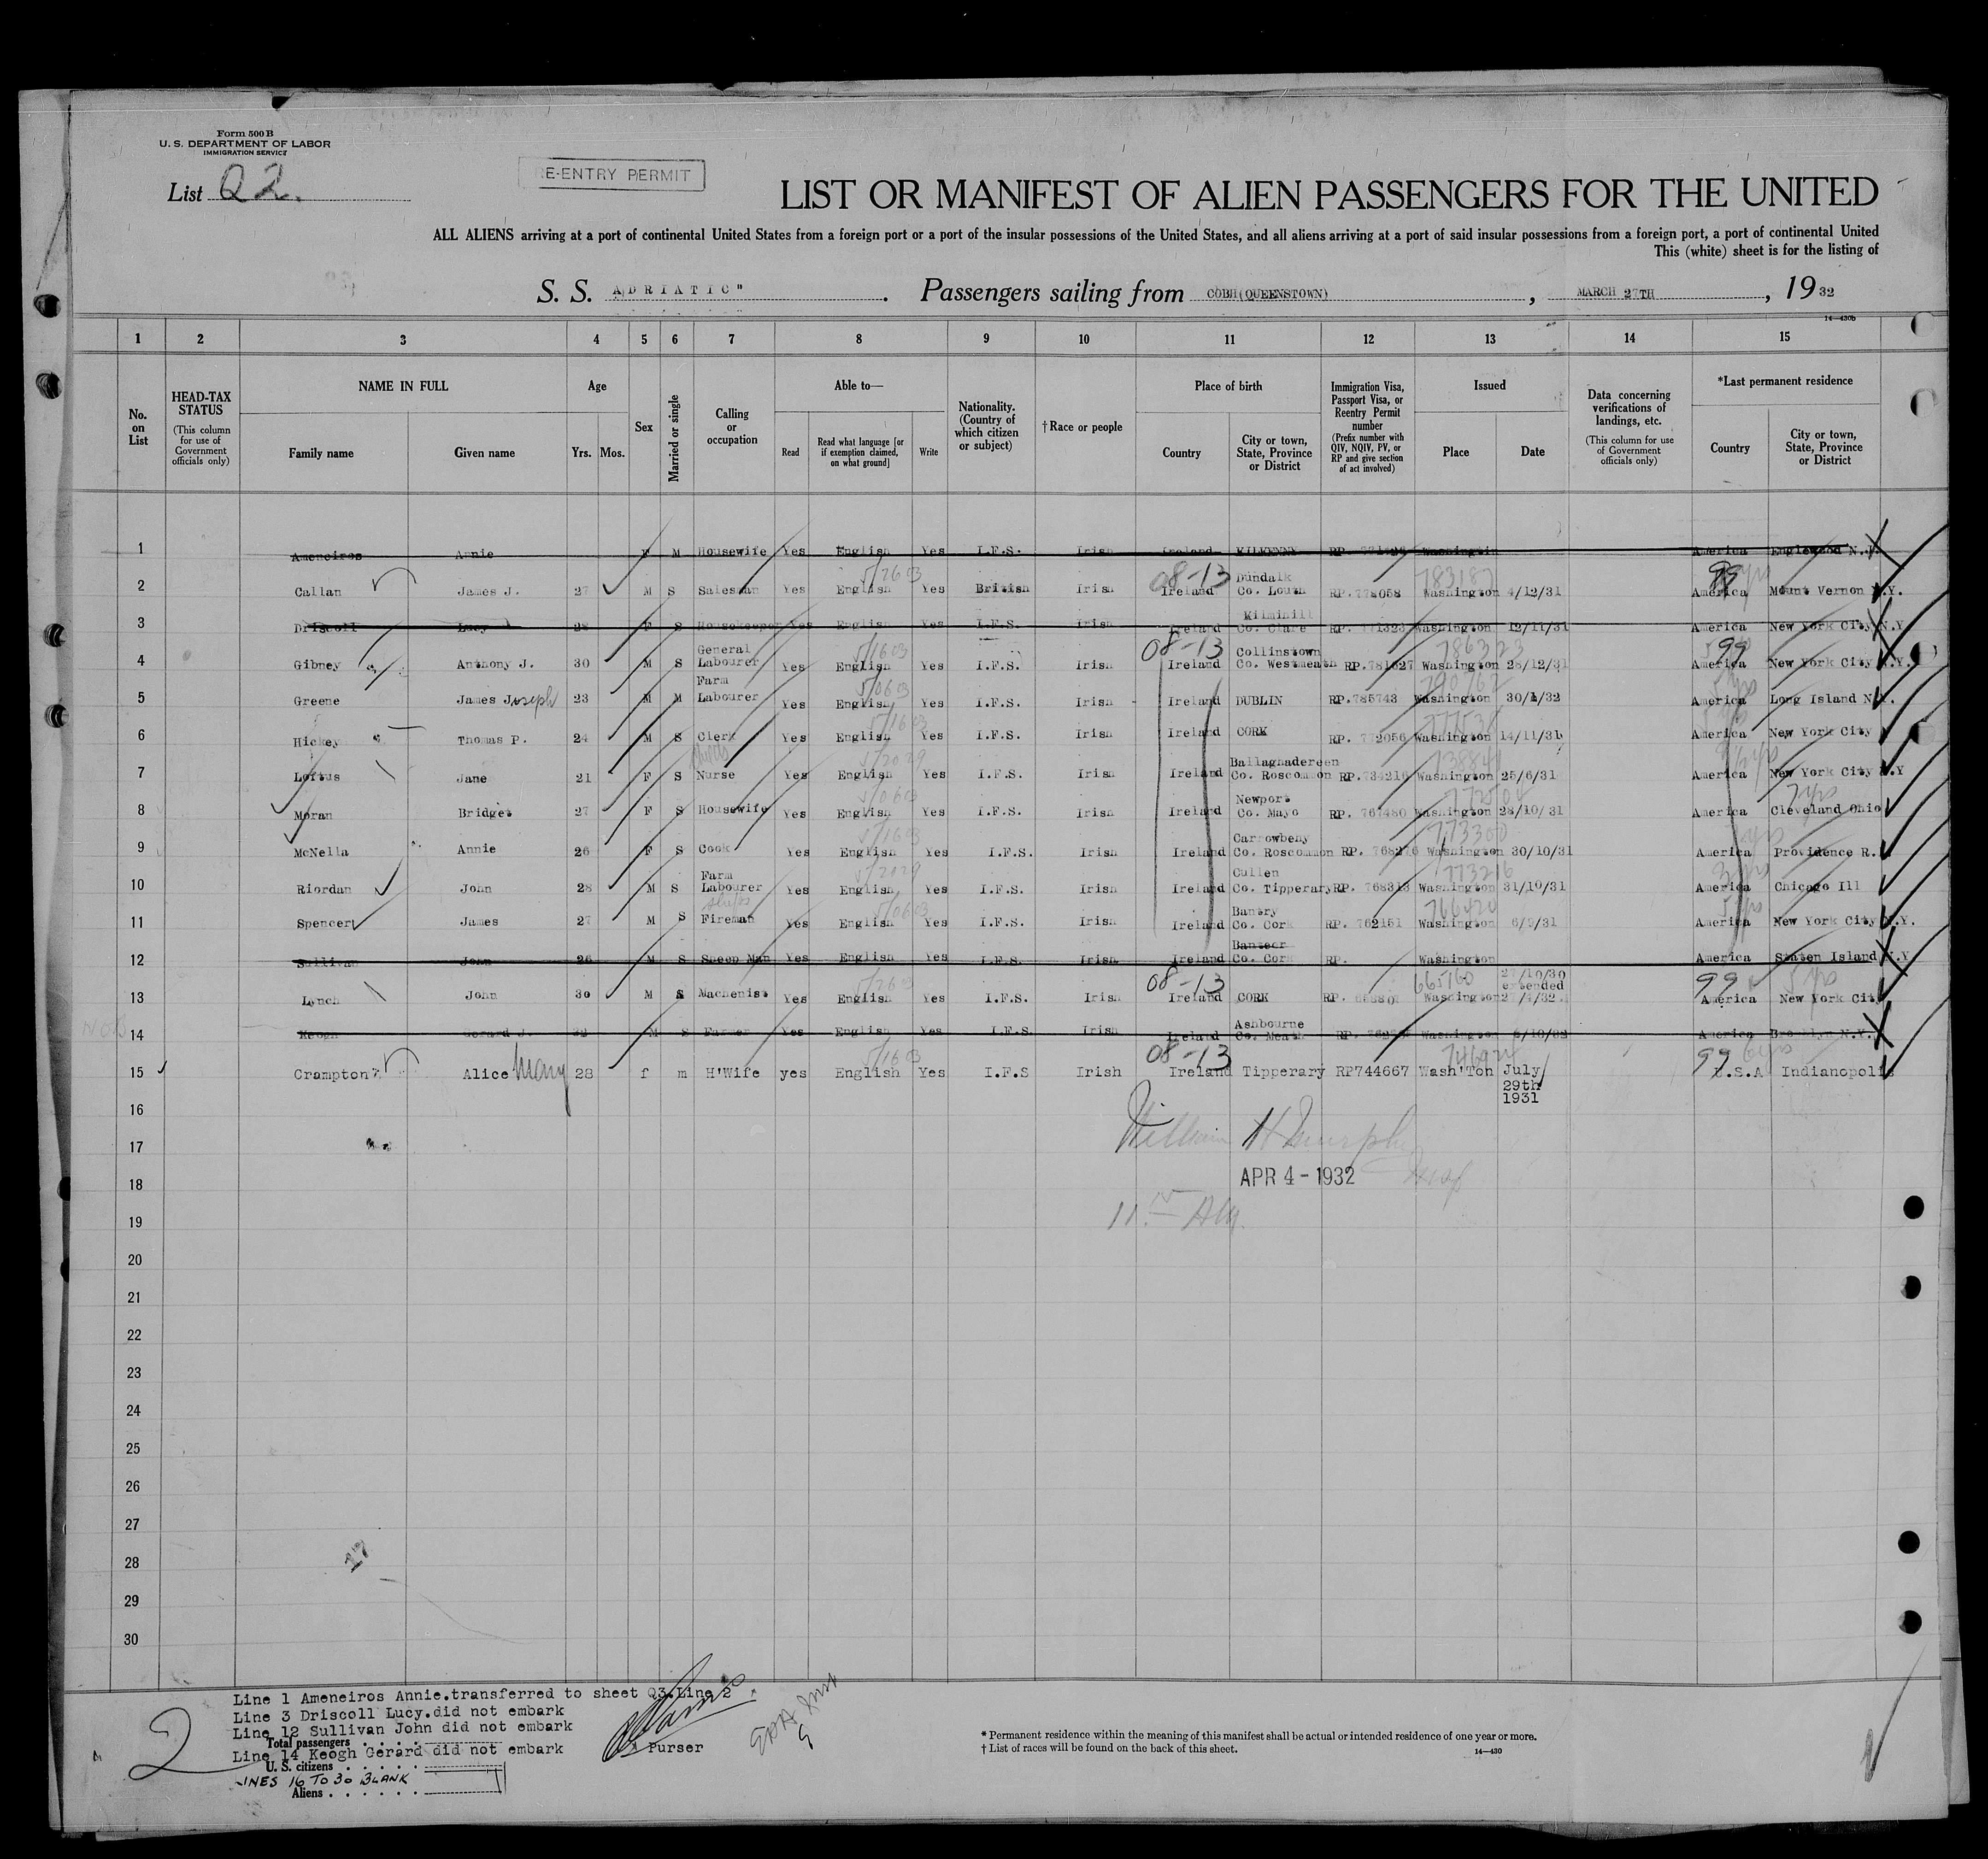 Form 500 B
U. S. DEPARTMENT OF LABOR
IMMIGRATION SERVICE
List Q2.
E-ENTRY PERMIT
LIST OR MANIFEST OF ALIEN PASSENGERS FOR THE UNITED
ALL ALIENS arriving at a port of continental United States from a foreign port or a port of the insular possessions of the United States, and all aliens arriving at a port of said insular possessions from a foreign port, a port of continental United
This (white) sheet is for the listing of
S. S. ADRIATIC" . Passengers sailing from COBH(QUEENSTOWN) , MARCH 27TH , 19 32
14—430b
1 2 3 4 5 6 7 8 9 10 11 12 13 14 15
No. on List
HEAD-TAX STATUS
(This column for use of Government officials only)
NAME IN FULL
Family name Given name
Age
Yrs. Mos.
Sex
Married or single
Calling or occupation
Able to—
Read
Read what language [or if exemption claimed, on what ground]
Write
Nationality. (Country of which citizen or subject)
†Race or people
Place of birth
Country
City or town, State, Province or District
Immigration Visa, Passport Visa, or Reentry Permit number
(Prefix number with QIV, NQIV, PV, or RP and give section of act involved)
Issued
Place Date
Data concerning verifications of landings, etc.
(This column for use of Government officials only)
*Last permanent residence
Country
City or town, State, Province or District
1 Ameneiros Annie F M Housewife Yes English Yes I.F.S. Irish Ireland KILKENNY RP. Washington America Englewood N.J.
5/2603 08-13 Dundalk 783187 99
2 Callan James J. 27 M S Salesman Yes English Yes British Irish Ireland Co. Louth RP.778058 Washington 4/12/31 America Mount Vernon N.Y.
Kilmihill
3 Driscoll Lucy 28 F S Housekeeper Yes English Yes I.F.S. Irish Ireland Co. Clare RP. 771323 Washington 12/11/31 America New York City N.Y
General 5/1603 08-13 Collinstown 786323 99
4 Gibney Anthony J. 30 M S Labourer Yes English Yes I.F.S. Irish Ireland Co. Westmeath RP.781627 Washington 28/12/31 America New York City N.Y.
Farm 5/0603 790762
5 Greene James Joseph 23 M M Labourer Yes English Yes I.F.S. Irish Ireland DUBLIN RP.785743 Washington 30/1/32 America Long Island N.Y.
5/1603
6 Hickey Thomas P. 24 M S Clerk Yes English Yes I.F.S. Irish Ireland CORK RP. 772056 Washington 14/11/31 America New York City
5/2029 Ballaghadereen 738841
7 Loftus Jane 21 F S Nurse Yes English Yes I.F.S. Irish Ireland Co. Roscommon RP.734216 Washington 25/6/31 America New York City N.Y
5/0603 Newport 7 yrs
8 Moran Bridget 27 F S Housewife Yes English Yes I.F.S. Irish Ireland Co. Mayo RP. 767480 Washington 28/10/31 America Cleveland Ohio
5/1603 Carrowbeny 773300
9 McNella Annie 26 F S Cook Yes English Yes I.F.S. Irish Ireland Co. Roscommon RP. Washington 30/10/31 America Providence R.I.
Farm 5/2029 Cullen 773216
10 Riordan John 28 M S Labourer Yes English Yes I.F.S. Irish Ireland Co. Tipperary RP. 768313 Washington 31/10/31 America Chicago Ill
ships 5/0603 Bantry 766420
11 Spencer James 27 M S Fireman Yes English Yes I.F.S. Irish Ireland Co. Cork RP. 762151 Washington America New York City N.Y.
Banteer
12 Sullivan John 26 M S Sheep Man Yes English Yes I.F.S. Irish Ireland Co. Cork RP. Washington America Staten Island N.Y
5/2603 08-13 665160 27/10/30 extended 99 5 yrs
13 Lynch John 30 M S Machenist Yes English Yes I.F.S. Irish Ireland CORK RP. Washington 27/4/32. America New York City
Ashbourne
14 Keogh Gerard J. 32 M S Farmer Yes English Yes I.F.S Irish Ireland Co. Meath RP. Washington America Brooklyn N.Y.
5/1603 08-13 99 6 yrs
15 Crampton Alice Mary 28 f m H'Wife yes English Yes I.F.S Irish Ireland Tipperary RP744667 Wash'Ton July 29th 1931 U.S.A Indianopolis
16
17 William H Murphy
18 APR 4 - 1932
19
20
21
22
23
24
25
26
27
28
29
30
Line 1 Ameneiros Annie.transferred to sheet Q3.Line 2
Line 3 Driscoll Lucy.did not embark
Line 12 Sullivan John did not embark
Total passengers
Line 14 Keogh Gerard did not embark
U. S. citizens
LINES 16 TO 30 BLANK
Aliens
2
Purser
* Permanent residence within the meaning of this manifest shall be actual or intended residence of one year or more.
† List of races will be found on the back of this sheet.
14—430